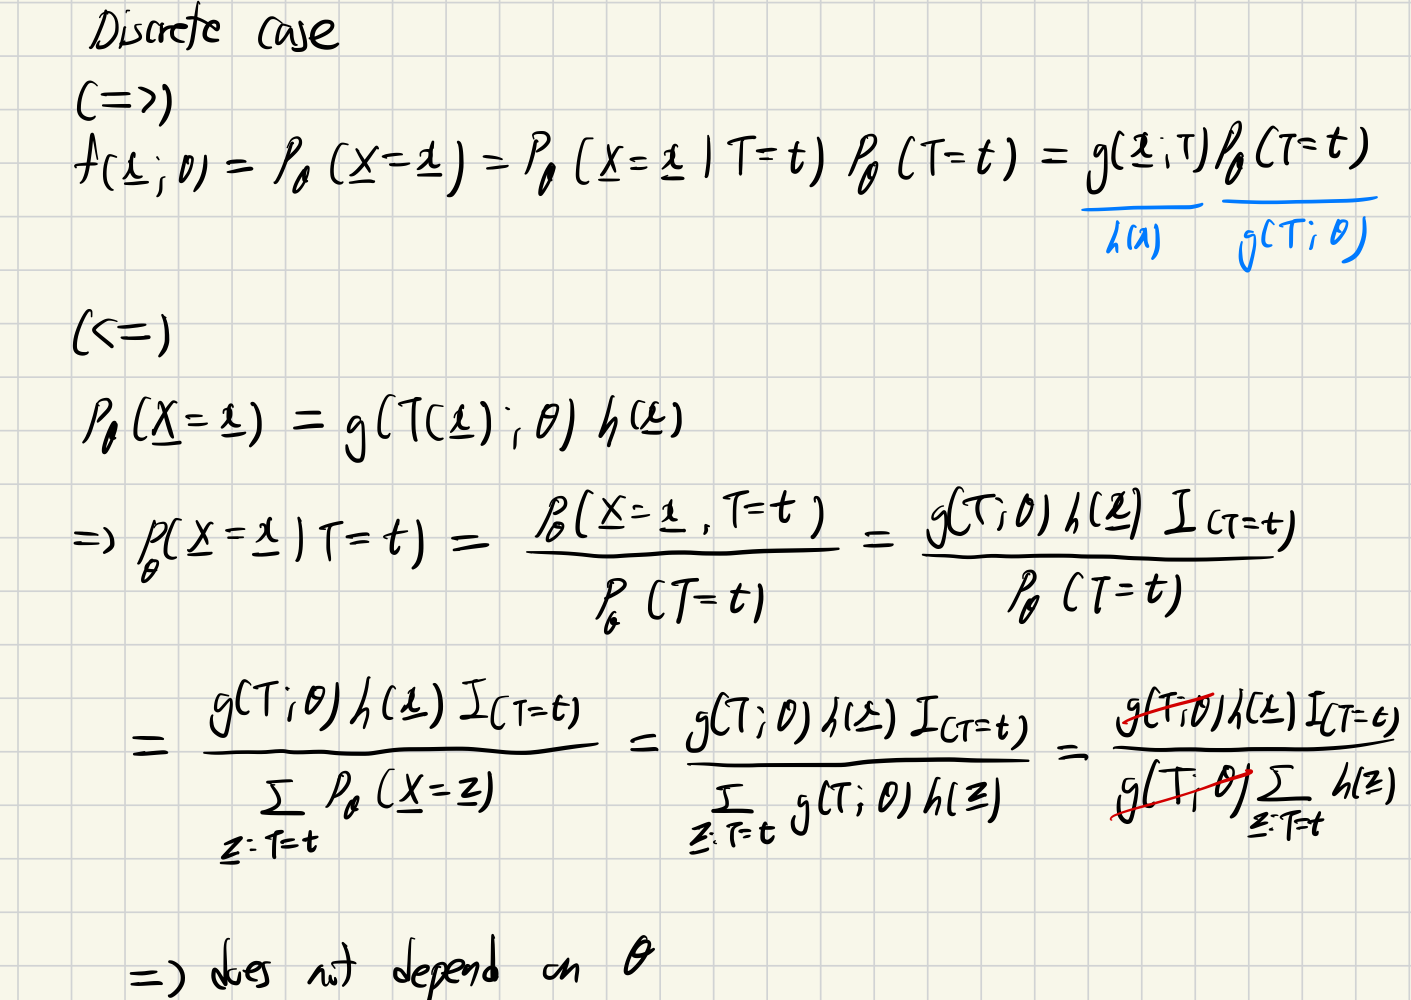 Discrete case
(=>)
f(x̲; θ) = P_θ (X̲ = x̲) = P_θ (X̲ = x̲ | T = t) P_θ (T = t) = g(x̲, T) P_θ (T = t)
h(x) g(T; θ)
(<=)
P_θ (X̲ = x̲) = g(T(x̲); θ) h(x̲)
=> P_θ (X̲ = x̲ | T = t) = P_θ (X̲ = x̲, T = t) / P_θ (T = t) = g(T; θ) h(x̲) I_(T = t) / P_θ (T = t)
= g(T; θ) h(x̲) I_(T = t) / Σ_{z̲: T = t} P_θ (X̲ = z̲) = g(T; θ) h(x̲) I_(T = t) / Σ_{z̲: T = t} g(T; θ) h(z̲) = g(T; θ) h(x̲) I_(T = t) / g(T; θ) Σ_{z̲: T = t} h(z̲)
=> does not depend on θ